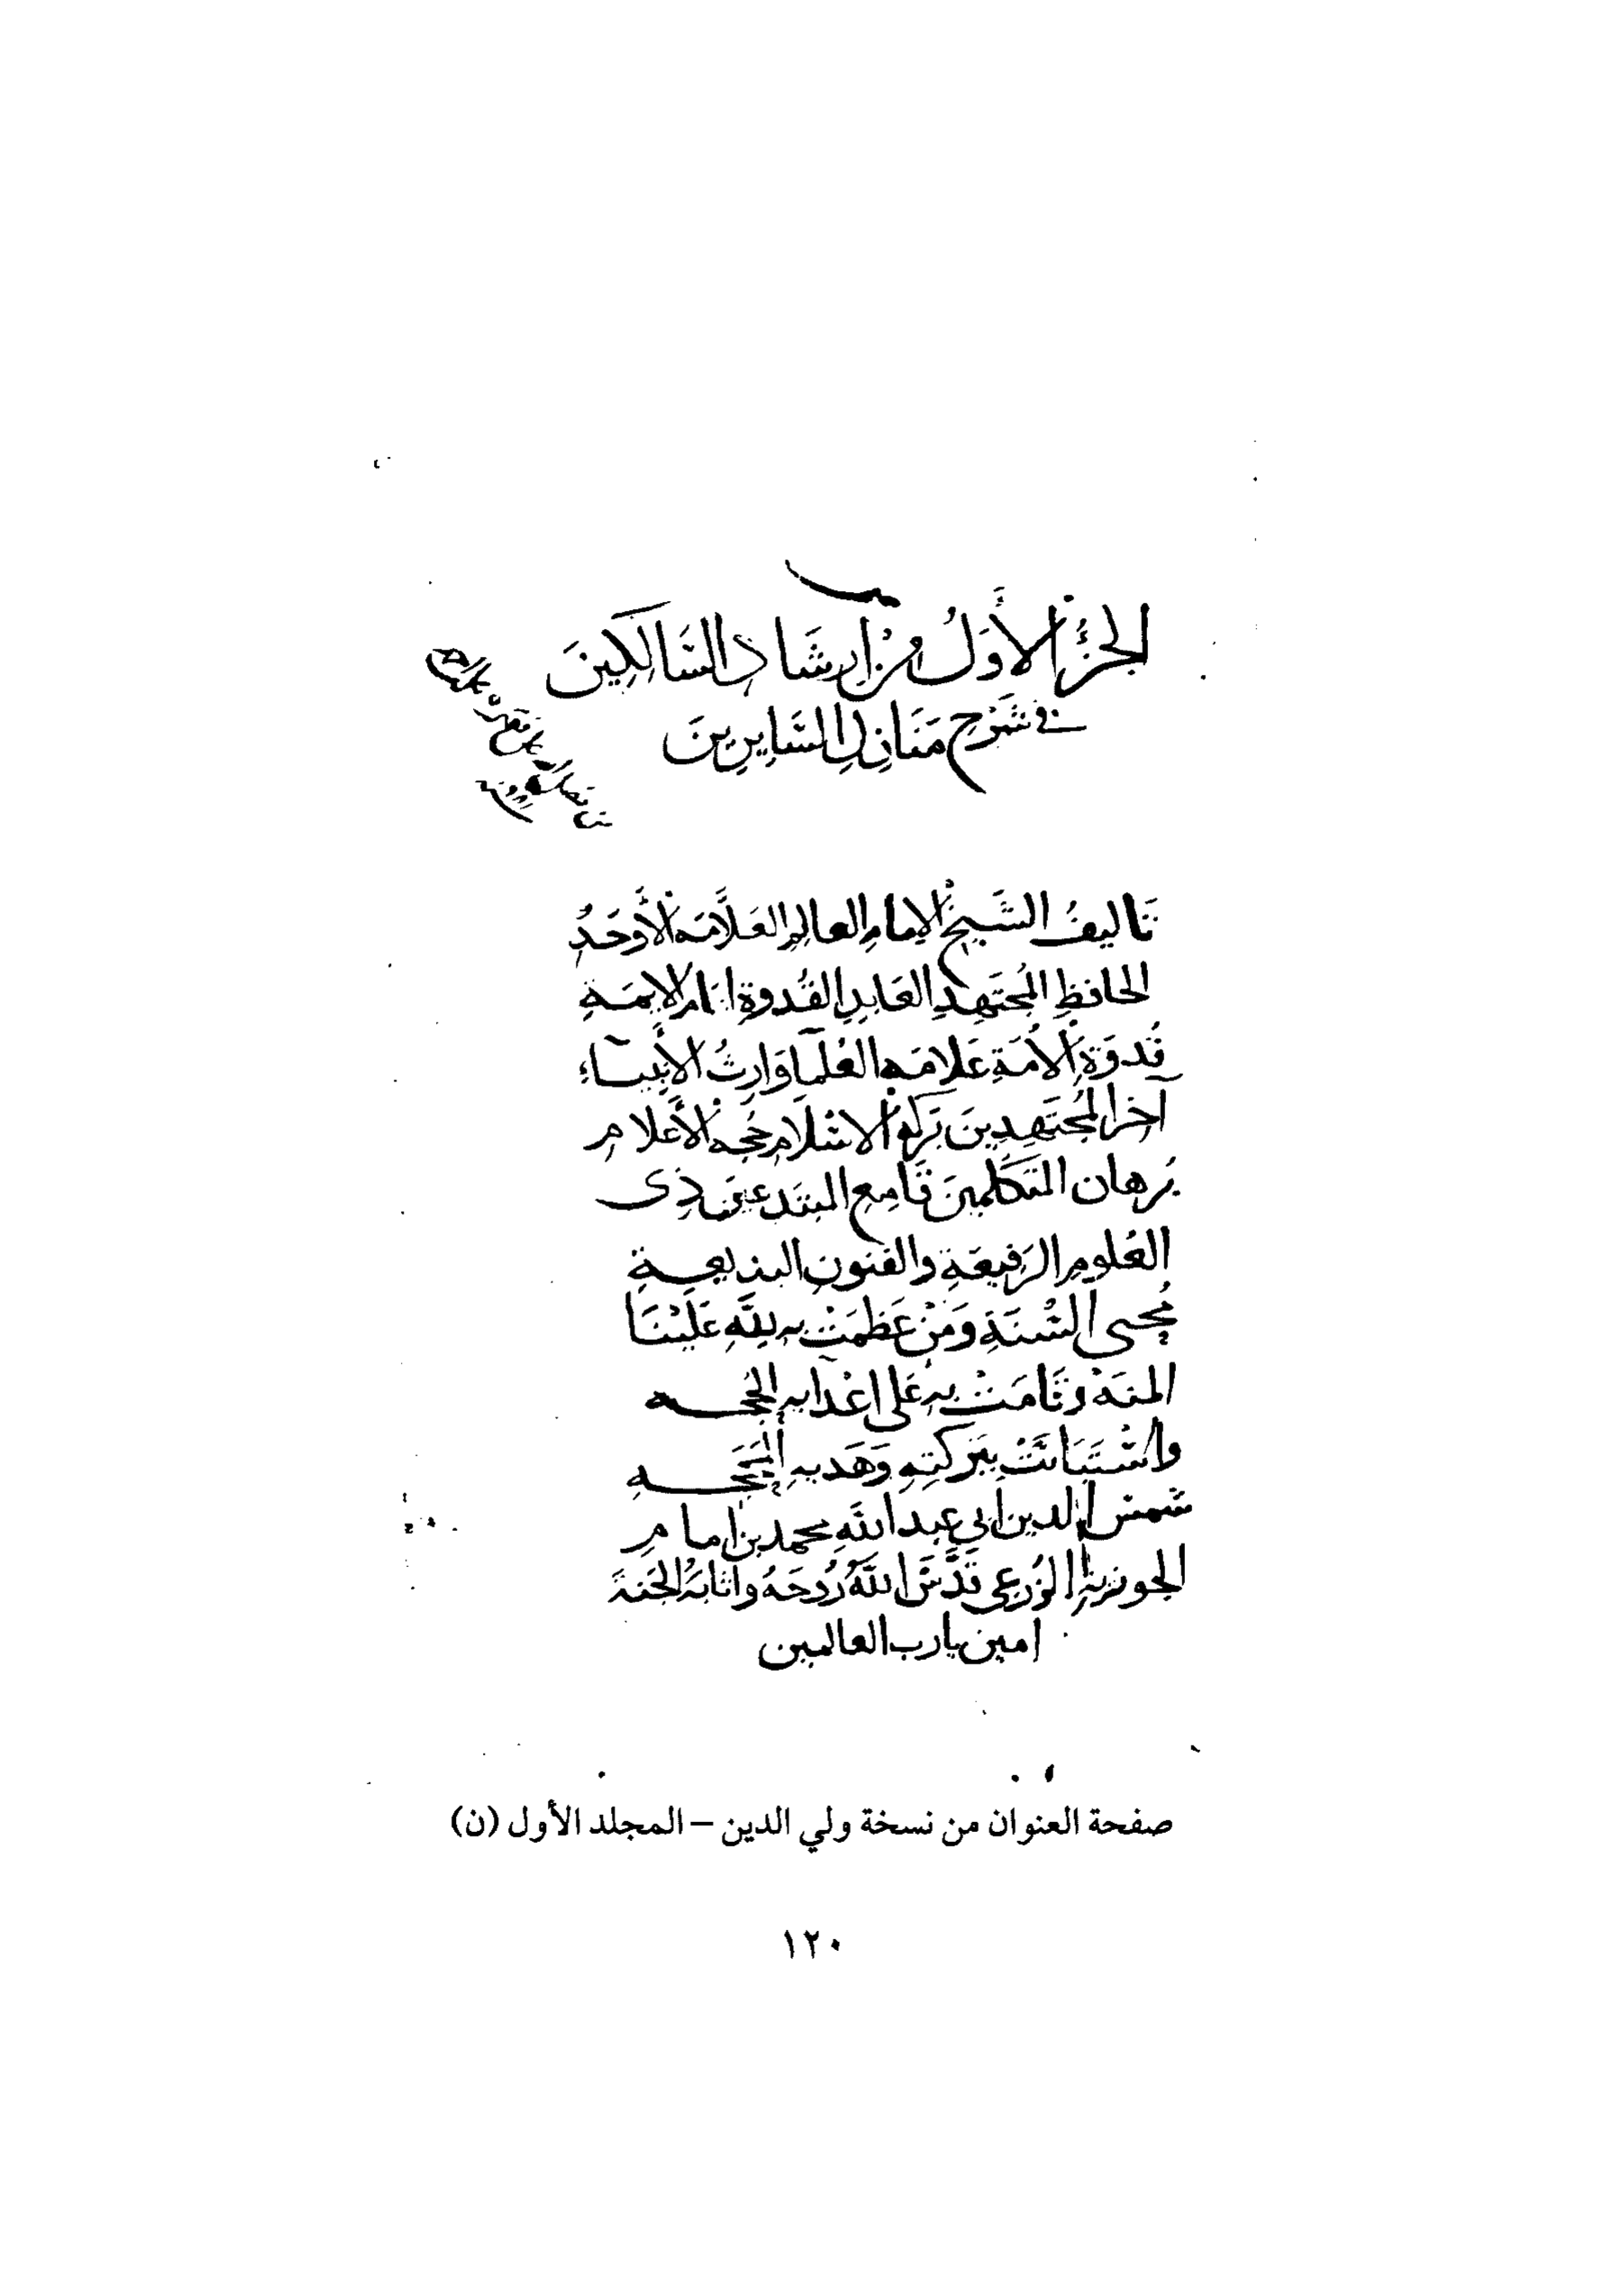 الجزُء الأَوَلُ مِنْ ارشَادِ السَّالِكِينَ
في شَرْحِ مَنَازِلِ السَّايِرِينَ
تَاليفُ الشَّيخِ الإمامِ العالِمِ العَلاَّمَه الأَوحَدُ
الحافظِ المجُتَهِدِ العَابِدِ القُدوةِ امَام الايمَةِ
قُدوَةِ الأمَةِ عَلامَه العُلَمآ وَارِثُ الأنبِيآءِ
آخر المجُتَهِدِينَ بَرَكَة الاسْلَامِ حُجة الأَعْلامِ
بُرهان المتَكَلمِينَ قَامِعِ المبتَدعينَ ذِى
العُلومِ الرَفيعَةِ والفنونِ البَديعةِ
مُحيى السُّنَةِ وَمَنْ عَظمَتْ بهِ للَّهِ عَلَيْنَا
المنَة وقَامَتْ بهِ عَلى اعْدَايهِ الحُجه
واسْتَبَانَتْ بِبَركَتِهِ وَهَديهِ المَحَجهِ
شمس الدين ابي عبد اللَّهِ محمد بن امامِ
الجوزيةِ الزُرعي قَدَّسَ اللَّهُ رُوحَهُ واثابَهُ الجَنةَ
امين يارب العالمين
صفحة العنوان من نسخة ولي الدين – المجلد الأول (ن)
١٢٠